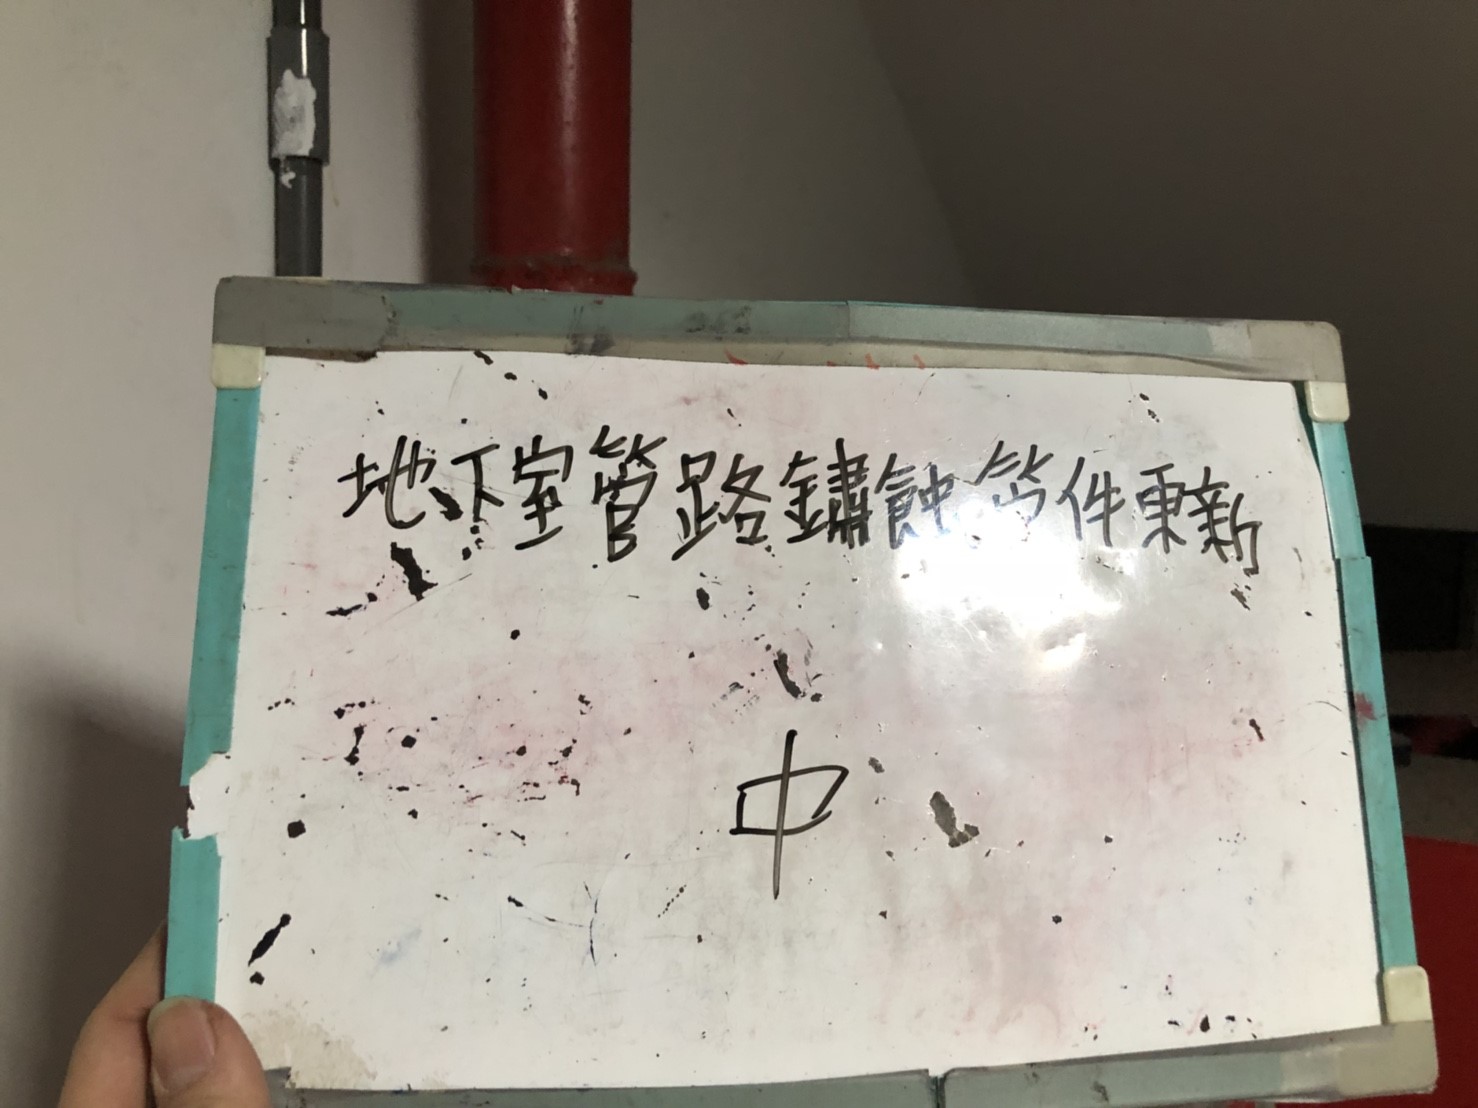 地下室管路鏽蝕管件更新
中